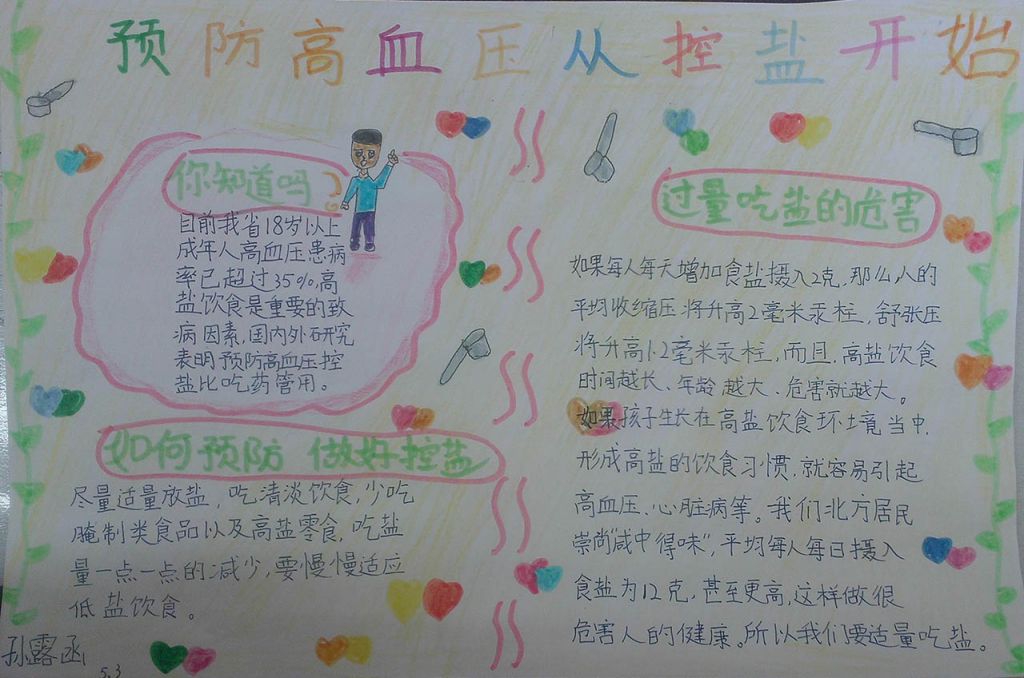 预防高血压从控盐开始
你知道吗
目前我省18岁以上
成年人高血压患病
率已超过35%,高
盐饮食是重要的致
病因素,国内外研究
表明预防高血压控
盐比吃药管用。
如何预防 做好控盐
尽量适量放盐,吃清淡饮食,少吃
腌制类食品以及高盐零食,吃盐
量一点一点的减少,要慢慢适应
低盐饮食。
孙露函
5.3
过量吃盐的危害
如果每人每天增加食盐摄入2克,那么人的
平均收缩压将升高2毫米汞柱,舒张压
将升高1.2毫米汞柱,而且,高盐饮食
时间越长、年龄越大、危害就越大。
如果孩子生长在高盐饮食环境当中,
形成高盐的饮食习惯,就容易引起
高血压、心脏病等。我们北方居民
崇尚“咸中得味”,平均每人每日摄入
食盐为12克,甚至更高,这样做很
危害人的健康。所以我们要适量吃盐。